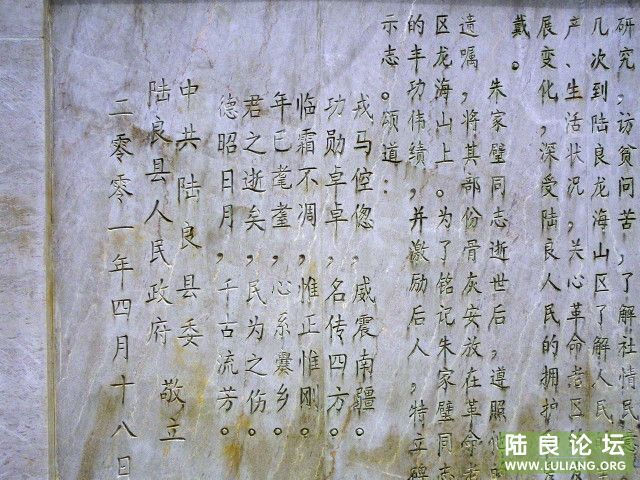 研究，访贫问苦，了解社情民
几次到陆良龙海山区了解人民
产、生活状况，关心革命老区的
展变化，深受陆良人民的拥护
戴。
朱家璧同志逝世后，遵照
遗嘱，将其部份骨灰安放在革命老
区龙海山上。为了铭记朱家璧同志
的丰功伟绩，并激励后人，特立碑
示志。颂道：
戎马倥偬，威震南疆。
功勋卓卓，名传四方。
临霜不凋，惟正惟刚。
年已耄耋，心系爨乡。
君之逝矣，民为之伤。
德昭日月，千古流芳。
中共陆良县委
陆良县人民政府 敬立
二零零一年四月十八日
陆良论坛
WWW.LULIANG.ORG